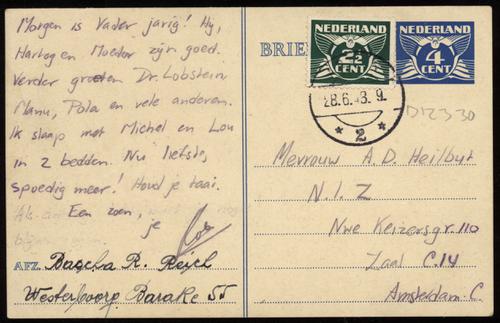 Morgen is Vader jarig! Hij,
Hartog en Moeder zijn goed.
Verder groeten Dr. Lobstein
Manu, Pola en vele anderen.
Ik slaap met Michel en Lou
in 2 bedden. Nu liefste,
spoedig meer! Houd je taai.
Een zoen,
je
AFZ. R. Reich
Westerboorg Barake 55
NEDERLAND
2½
CENT
NEDERLAND
4
CENT
BRIE
28.6.43.9.
2
Mevrouw A. D. Heilbut
N.I.Z
Nwe Keizersgr. 110
Zaal C.14
Amsterdam-C.